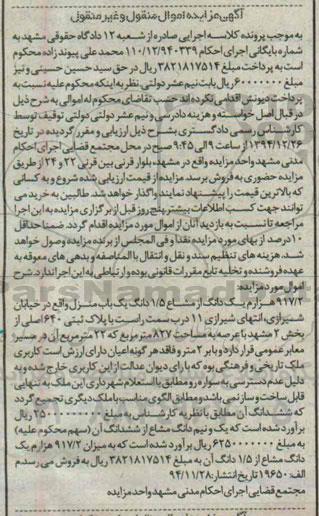 آگهی مزایده اموال منقول و غیر منقول
به موجب پرونده کلاسه اجرایی صادره از شعبه ۱۲ دادگاه حقوقی مشهد به
شماره بایگانی اجرای احکام ۱۱۰/۱۳/۹۴۰۳۳۹ محمد علی پیوند زاده محکوم
است به پرداخت مبلغ ۳۸۲۱۸۱۷۵۱۴ ریال در حق سید حسین حسینی و نیز
مبلغ ۶۰۰۰۰۰۰۰ ریال بابت نیم عشر دولتی نظر به اینکه محکوم علیه نسبت به
پرداخت دیونش اقدامی نکرده اند حسب تقاضای محکوم له اموالی به شرح ذیل
در قبال اصل خواسته و هزینه دادرسی و نیم عشر دولتی دولتی توقیف توسط
کارشناس رسمی دادگستری بشرح ذیل ارزیابی و مقرر گردیده در تاریخ
۱۳۹۴/۱۲/۲۶ از ساعت ۹ الی ۹:۴۵ صبح در محل مجتمع قضایی اجرای احکام
مدنی مشهد واحد مزایده واقع در مشهد بلوار قرنی بین قرنی ۲۲ و ۲۴ از طریق
مزایده حضوری به فروش برسد مزایده از قیمت ارزیابی شده شروع و به کسانی
که بالاترین قیمت را پیشنهاد نمایند واگذار خواهد شد. طالبین به خرید می
توانند جهت کسب اطلاعات بیشتر پنج روز قبل از برگزاری مزایده به این اجرا
مراجعه تا نسبت به بازدید آنان از اموال مورد مزایده اقدام گردد. ضمنا حداقل
۱۰ درصد از بهای مورد مزایده نقدا و فی المجلس از برنده مزایده وصول خواهد
شد. هزینه های تنظیم سند و نقل و انتقال با المناصفه و بدهی های معوقه به
عهده فروشنده و تخلیه تابع مقررات قانونی بوده و ارتباطی به این اجرا ندارد. شرح
اموال مورد مزایده:
۹۱۷/۲ هزارم یک دانگ از مشاع ۱/۵ دانگ یک باب منزل واقع در خیابان
شیرازی، انتهای شیرازی ۱۱ درب سمت راست با پلاک ثبتی ۶۴۰ اصلی از
بخش ۲ مشهد با عرصه به مساحت ۸۲۷ مترمربع که ۲۲ مترمربع آن در مسیر
معابر عمومی قرار دارد و بابر ۲ متر و فاقد هر گونه اعیان دارای ارزش است کاربری
ملک تاریخی و فرهنگی بوده که با رای دیوان عدالت از این کاربری خارج شده و به
دلیل عدم دسترسی به سواره رو مطابق با استعلام شهرداری این ملک به تنهایی
قابل ساخت و ساز نمی باشد و مطابق الگوی مناسب با ملک دیگری تجمیع گردد
که ششدانگ آن مطابق با نظریه کارشناس به مبلغ ۲۵۰۰۰۰۰۰۰۰۰ ریال
برآورد شده است که یک و نیم دانگ مشاع از ششدانگ آن (سهم محکوم علیه)
به مبلغ ۶۲۵۰۰۰۰۰۰۰ ریال برآورد شده است که به میزان ۹۱۷/۲ هزارم یک
دانگ مشاع از ۱/۵ دانگ آن به مبلغ ۳۸۲۱۸۱۷۵۱۴ ریال به فروش می رسد. م
الف: ۱۹۶۵۰ تاریخ انتشار: ۹۴/۱۱/۲۸
مجتمع قضایی اجرای احکام مدنی مشهد واحد مزایده